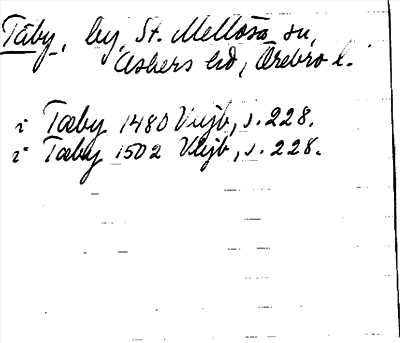 Täby, by, St. Mellösa sn,
Askers hd, Örebro l.
i Tæby 1480 Vujb, s. 228.
i Tæby 1502 Vujb, s. 228.